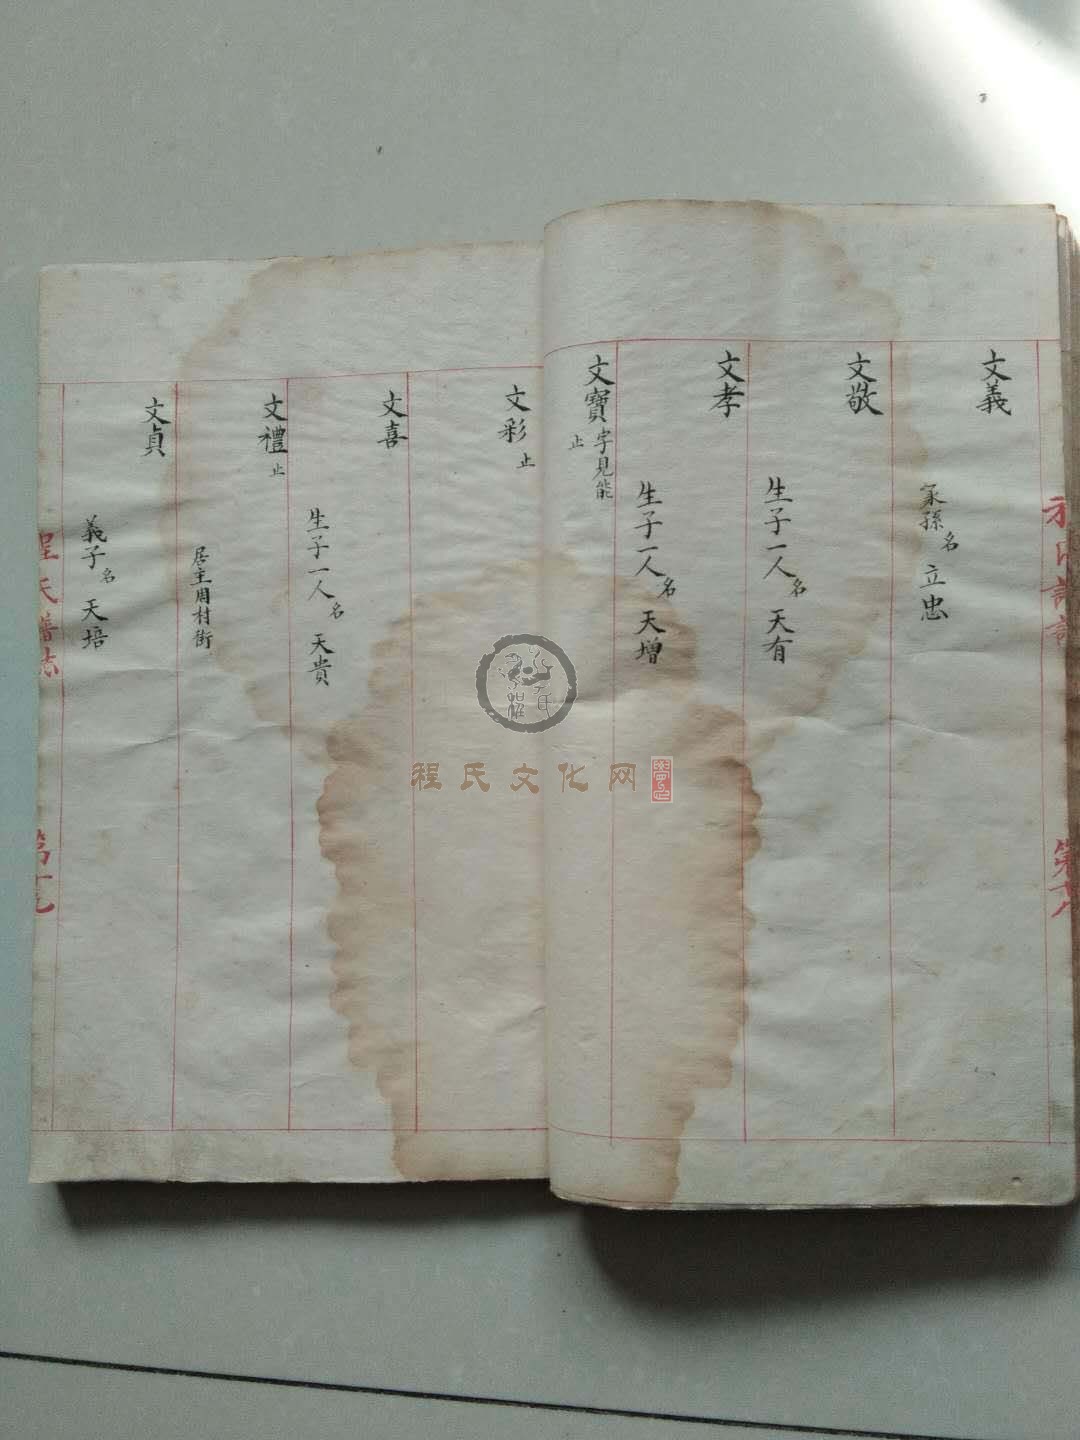 文義
孫名立忠
文敬
生子一人名天有
文孝
生子一人名天增
文寶字見能
止
文彩止
文喜
生子一人名天貴
文禮止
居主周村街
文貞
義子名天培
程氏譜志
程氏文化网